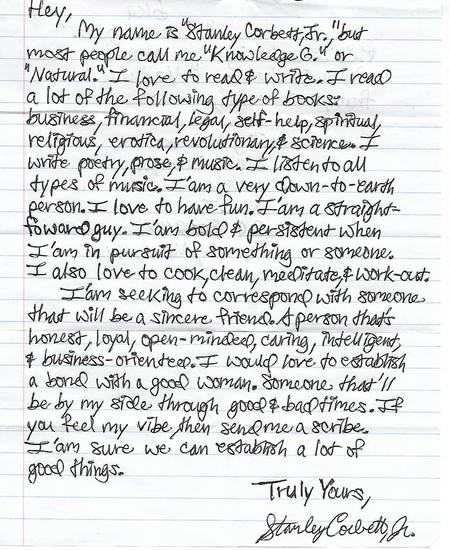 Hey,
My name is "Stanley Corbett, Jr.," but
most people call me "Knowledge G." or
"Natural." I love to read & write. I read
a lot of the following type of books:
business, financial, legal, self-help, spiritual,
religious, erotica, revolutionary, & science. I
write poetry, prose, & music. I listen to all
types of music. I'am a very down-to-earth
person. I love to have fun. I'am a straight-
foward guy. I'am bold & persistent when
I'am in pursuit of something or someone.
I also love to cook, clean, meditate, & work-out.
I'am seeking to correspond with someone
that will be a sincere friend. A person that's
honest, loyal, open-minded, caring, intelligent,
& business-oriented. I would love to establish
a bond with a good woman. Someone that'll
be by my side through good & bad times. If
you feel my vibe, then send me a scribe.
I'am sure we can establish a lot of
good things.
Truly Yours,
Stanley Corbett, Jr.